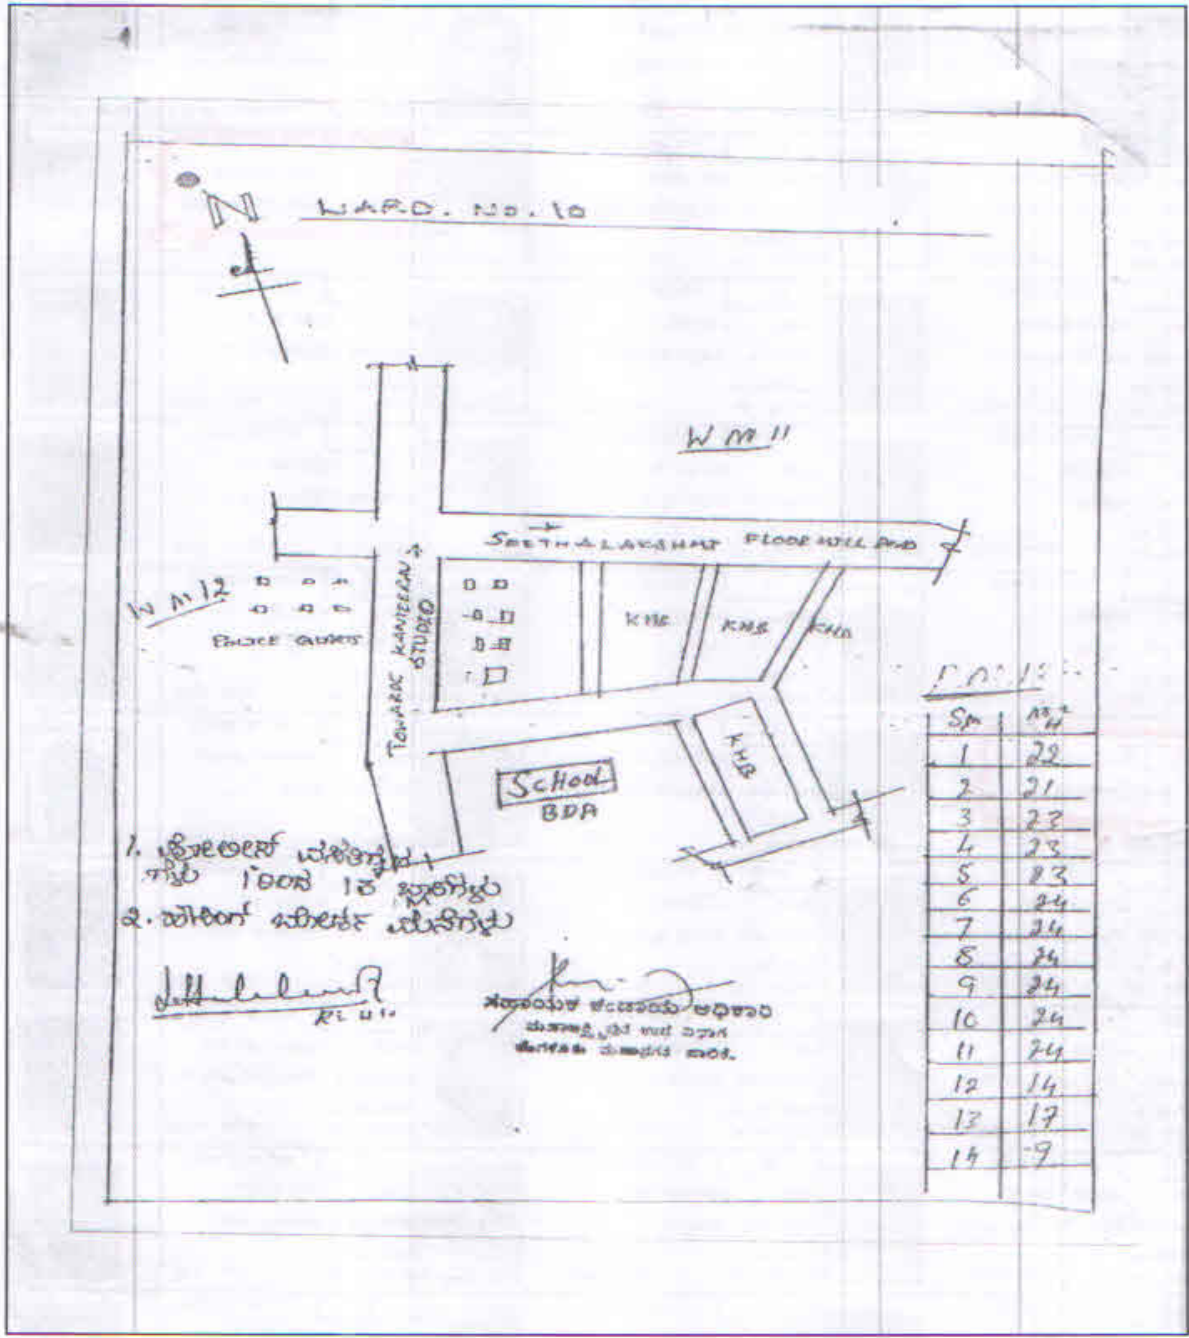 N
WARD. NO. 10
W M 11
SEETHALAKSHMI FLOOR MILL ROAD
W M 12
POLICE QUARTS
TOWARDS KANTEERN
STUDIO
KHB
KHB
KHB
KHB
SCHOOL
BDA
1. ಪೊಲೀಸ್ ವಸತಿಗೃಹ
ಗಳು 1 ರಿಂದ 13 ಬ್ಲಾಕ್‌ಗಳು
2. ಹೌಸಿಂಗ್ ಬೋರ್ಡ್ ಮನೆಗಳು
ಸಹಾಯಕ ಕಂದಾಯ ಅಧಿಕಾರಿ
1 22
2 21
3 23
4 23
5 23
6 24
7 24
8 24
9 24
10 24
11 24
12 14
13 17
14 9